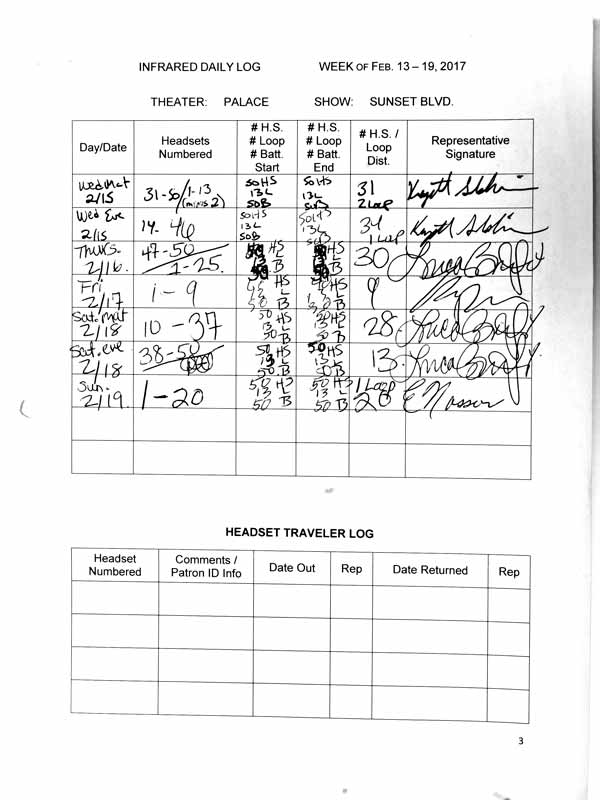 INFRARED DAILY LOG WEEK OF FEB. 13 – 19, 2017
THEATER: PALACE SHOW: SUNSET BLVD.
Day/Date
Headsets
Numbered
# H.S.
# Loop
# Batt.
Start
# H.S.
# Loop
# Batt.
End
# H.S. /
Loop
Dist.
Representative
Signature
Wed Mat
2/15
31-50/1-13
(minus 2)
50HS
13L
50B
50HS
13L
50B
31
2 Loop
Wed Eve
2/15
14-46
50HS
13L
50B
50HS
13L
50B
34
1 Loop
Thurs.
2/16
47-50
1-25
50 HS
13 L
50 B
50 HS
13 L
50 B
30
Fri
2/17
1-9
HS
13 L
50 B
HS
L
50 B
9
Sat. mat
2/18
10-37
50 HS
13 L
50 B
50 HS
13 L
50 B
28
Sat. eve
2/18
38-50
50 HS
13 L
50 B
50 HS
13 L
50 B
13
Sun.
2/19
1-20
50 HS
13 L
50 B
50 HS
13 L
50 B
1 Loop
20
HEADSET TRAVELER LOG
Headset
Numbered
Comments /
Patron ID Info
Date Out
Rep
Date Returned
Rep
3